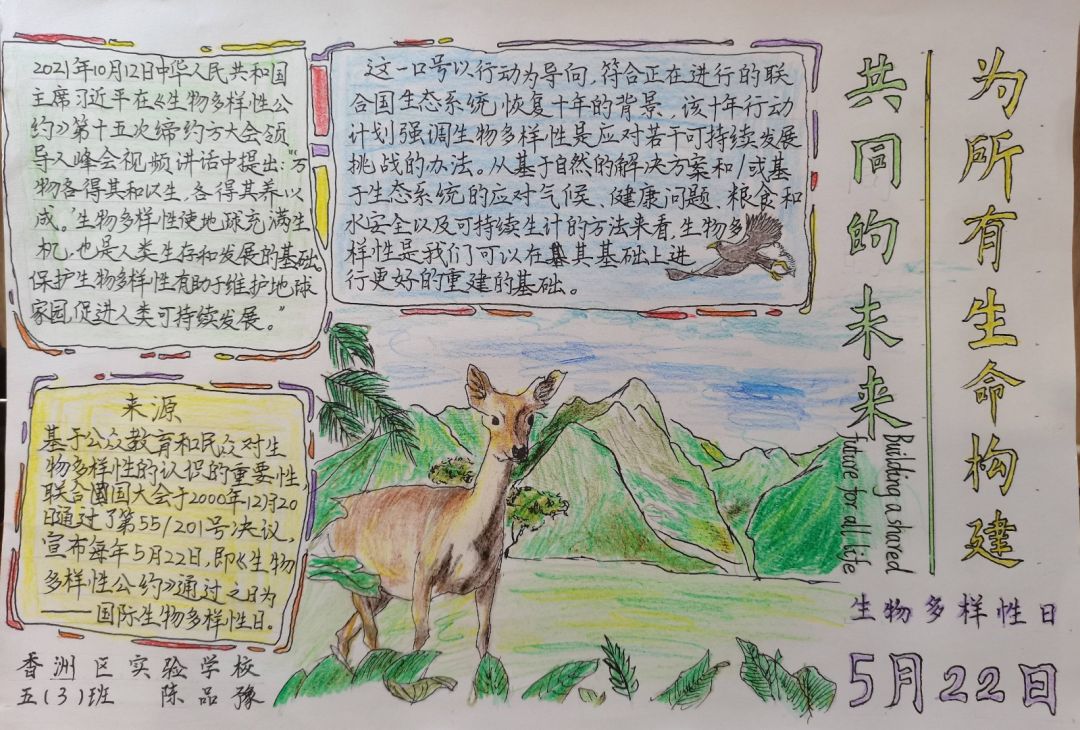 为所有生命构建
共同的未来
Building a shared
future for all life
生物多样性日
5月22日
2021年10月12日中华人民共和国
主席习近平在《生物多样性公
约》第十五次缔约方大会领
导人峰会视频讲话中提出:"万
物各得其和以生,各得其养以
成。"生物多样性使地球充满生
机,也是人类生存和发展的基础。
保护生物多样性有助于维护地球
家园,促进人类可持续发展。"
这一口号以行动为导向,符合正在进行的联
合国生态系统,恢复十年的背景,该十年行动
计划强调生物多样性是应对若干可持续发展
挑战的办法。从基于自然的解决方案和/或基
于生态系统的应对气候、健康问题、粮食和
水安全以及可持续生计的方法来看,生物多
样性是我们可以在其基础上进
行更好的重建的基础。
来源
基于公众教育和民众对生
物多样性的认识的重要性,
联合国大会于2000年12月20
日通过了第55/201号决议,
宣布每年5月22日,即《生物
多样性公约》通过之日为
——国际生物多样性日.
香洲区实验学校
五(3)班 陈品豫